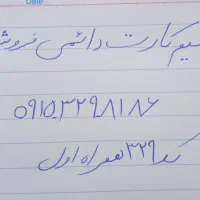 Date
سیم کارت دائمی فروش
۰۹۱۵۳۲۹۸۱۸۶
کد ۳۲۹ همراه اول